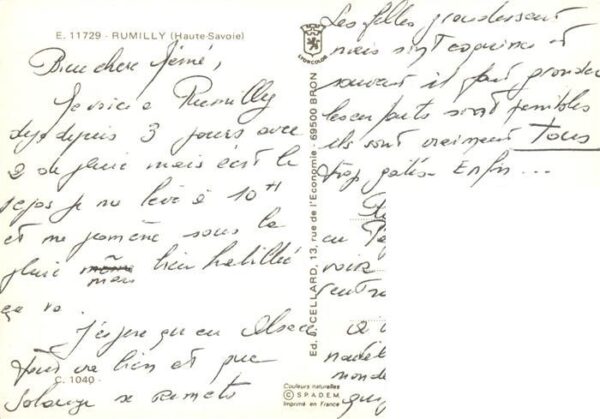 E. 11729 - RUMILLY (Haute-Savoie)
Bien chère Mémé,
Je voici à Rumilly
depuis 3 jours avec
2 de pluie mais c'est le
repos je me lève à 10H
et me promène sous la
pluie mais bien habillée
ça va.
J'espère qu'en Alsace
tout va bien et que
Solange se remets
C. 1040 -
LYONCOLOR
Ed. CELLARD, 13, rue de l'Economie - 69500 BRON
Couleurs naturelles
© S.P.A.D.E.M.
Imprimé en France
Les filles grandissent
mais sont coquines et
souvent il faut gronder
les enfants sont pénibles
ils sont vraiment TOUS
trop gatés. Enfin...